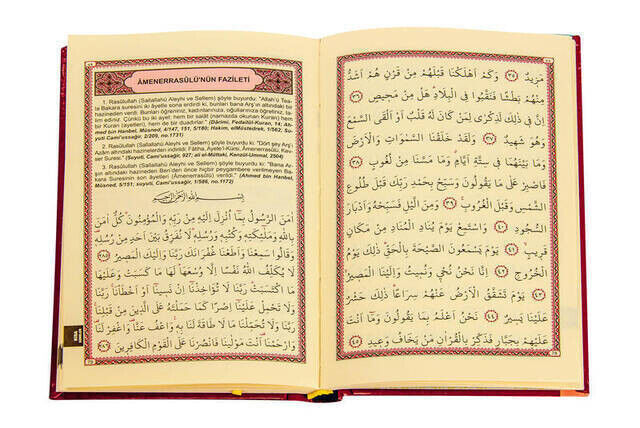 ÂMENERRASÛLÜ'NÜN FAZİLETİ
1. Rasûlullah (Sallallahü Aleyhi ve Sellem) şöyle buyurdu: "Allah'ü Tea-
la Bakara suresini iki âyetle sona erdirdi ki, bunları bana Arş'ın altındaki bir
hazineden verdi. Bunları öğreniniz, kadınlarınıza, oğullarınıza öğretiniz, be-
lim ediniz. Çünkü bu iki ayet; hem bir salât (namazda okunan Kurân) hem
bir Kuran (ayetleri), hem de bir duadırlar." (Dârimi, Fedailül-Kuran, 14; Ah-
med bin Hanbel, Müsned, 4/147, 151, 5/180; Hakim, elMüstedrek, 1/562; Su-
yuti Cami'ussağir, 2/209, no.1731)
2. Rasûlullah (Sallallahü Aleyhi ve Sellem) şöyle buyurdu ki: "Dört şey Arş'ı
Azâm altındaki hazinelerden indirildi: Fâtiha, Âyete'l-Kürsi, Âmenerrasûlü, Kev-
ser Suresi." (Suyuti, Cami'ussağir, 927; ali el-Müttaki, Kenzül-Ummal, 2504)
3. Rasûlullah (Sallallahü Aleyhi ve Sellem) şöyle buyurdu ki: "Bana Ar-
şın altındaki hazineden Ben'den önce hiçbir peygambere verilmeyen Ba-
kara Suresinin son âyetleri (Âmenerrasûlü) verildi." (Ahmed bin Hanbel,
Müsned, 5/151; suyuti, Cami'ussağir, 1/586, no.1172)
بِسْمِ اللهِ الرَّحْمٰنِ الرَّحِيمِ
اٰمَنَ الرَّسُولُ بِمَٓا اُنْزِلَ اِلَيْهِ مِنْ رَبِّهِ وَالْمُؤْمِنُونَ كُلٌّ اٰمَنَ
بِاللّٰهِ وَمَلٰٓئِكَتِهِ وَكُتُبِهِ وَرُسُلِهِ لَا نُفَرِّقُ بَيْنَ اَحَدٍ مِنْ رُسُلِهِ
وَقَالُوا سَمِعْنَا وَاَطَعْنَا غُفْرَانَكَ رَبَّنَا وَاِلَيْكَ الْمَصِيرُ ﴿٢٨٥﴾
لَا يُكَلِّفُ اللّٰهُ نَفْسًا اِلَّا وُسْعَهَا لَهَا مَا كَسَبَتْ وَعَلَيْهَا
مَا اكْتَسَبَتْ رَبَّنَا لَا تُؤَاخِذْنَٓا اِنْ نَسِينَٓا اَوْ اَخْطَأْنَا رَبَّنَا
وَلَا تَحْمِلْ عَلَيْنَٓا اِصْرًا كَمَا حَمَلْتَهُ عَلَى الَّذِينَ مِنْ قَبْلِنَا
رَبَّنَا وَلَا تُحَمِّلْنَا مَا لَا طَاقَةَ لَنَا بِهِ وَاعْفُ عَنَّا وَاغْفِرْ لَنَا
وَارْحَمْنَا اَنْتَ مَوْلٰينَا فَانْصُرْنَا عَلَى الْقَوْمِ الْكَافِرِينَ ﴿٢٨٦﴾
مَزِيدٌ ﴿٣٥﴾ وَكَمْ اَهْلَكْنَا قَبْلَهُمْ مِنْ قَرْنٍ هُمْ اَشَدُّ
مِنْهُمْ بَطْشًا فَنَقَّبُوا فِي الْبِلَادِ هَلْ مِنْ مَحِيصٍ ﴿٣٦﴾
اِنَّ فِي ذٰلِكَ لَذِكْرٰى لِمَنْ كَانَ لَهُ قَلْبٌ اَوْ اَلْقَى السَّمْعَ
وَهُوَ شَهِيدٌ ﴿٣٧﴾ وَلَقَدْ خَلَقْنَا السَّمٰوَاتِ وَالْاَرْضَ
وَمَا بَيْنَهُمَا فِي سِتَّةِ اَيَّامٍ وَمَا مَسَّنَا مِنْ لُغُوبٍ ﴿٣٨﴾
فَاصْبِرْ عَلٰى مَا يَقُولُونَ وَسَبِّحْ بِحَمْدِ رَبِّكَ قَبْلَ طُلُوعِ
الشَّمْسِ وَقَبْلَ الْغُرُوبِ ﴿٣٩﴾ وَمِنَ الَّيْلِ فَسَبِّحْهُ وَاَدْبَارَ
السُّجُودِ ﴿٤٠﴾ وَاسْتَمِعْ يَوْمَ يُنَادِ الْمُنَادِ مِنْ مَكَانٍ
قَرِيبٍ ﴿٤١﴾ يَوْمَ يَسْمَعُونَ الصَّيْحَةَ بِالْحَقِّ ذٰلِكَ يَوْمُ
الْخُرُوجِ ﴿٤٢﴾ اِنَّا نَحْنُ نُحْيِي وَنُمِيتُ وَاِلَيْنَا الْمَصِيرُ
﴿٤٣﴾ يَوْمَ تَشَقَّقُ الْاَرْضُ عَنْهُمْ سِرَاعًا ذٰلِكَ حَشْرٌ
عَلَيْنَا يَسِيرٌ ﴿٤٤﴾ نَحْنُ اَعْلَمُ بِمَا يَقُولُونَ وَمَٓا اَنْتَ
عَلَيْهِمْ بِجَبَّارٍ فَذَكِّرْ بِالْقُرْاٰنِ مَنْ يَخَافُ وَعِيدِ ﴿٤٥﴾